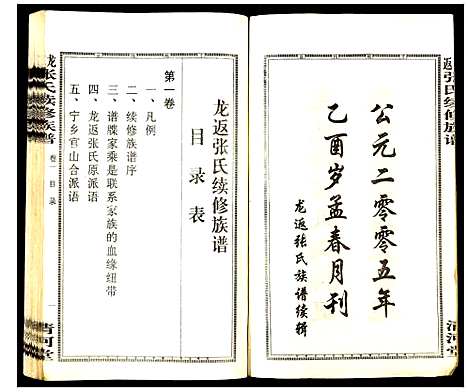 返张氏续修族谱
清河堂
公元二零零五年
乙酉岁孟春月刊
龙返张氏族谱续辑
龙返张氏续修族谱
目录表
第一卷
一、凡例
二、续修族谱序
三、谱牒家乘是联系家族的血缘纽带
四、龙返张氏原派语
五、宁乡官山合派语
张氏续修族谱
卷一
目录
一
清河堂